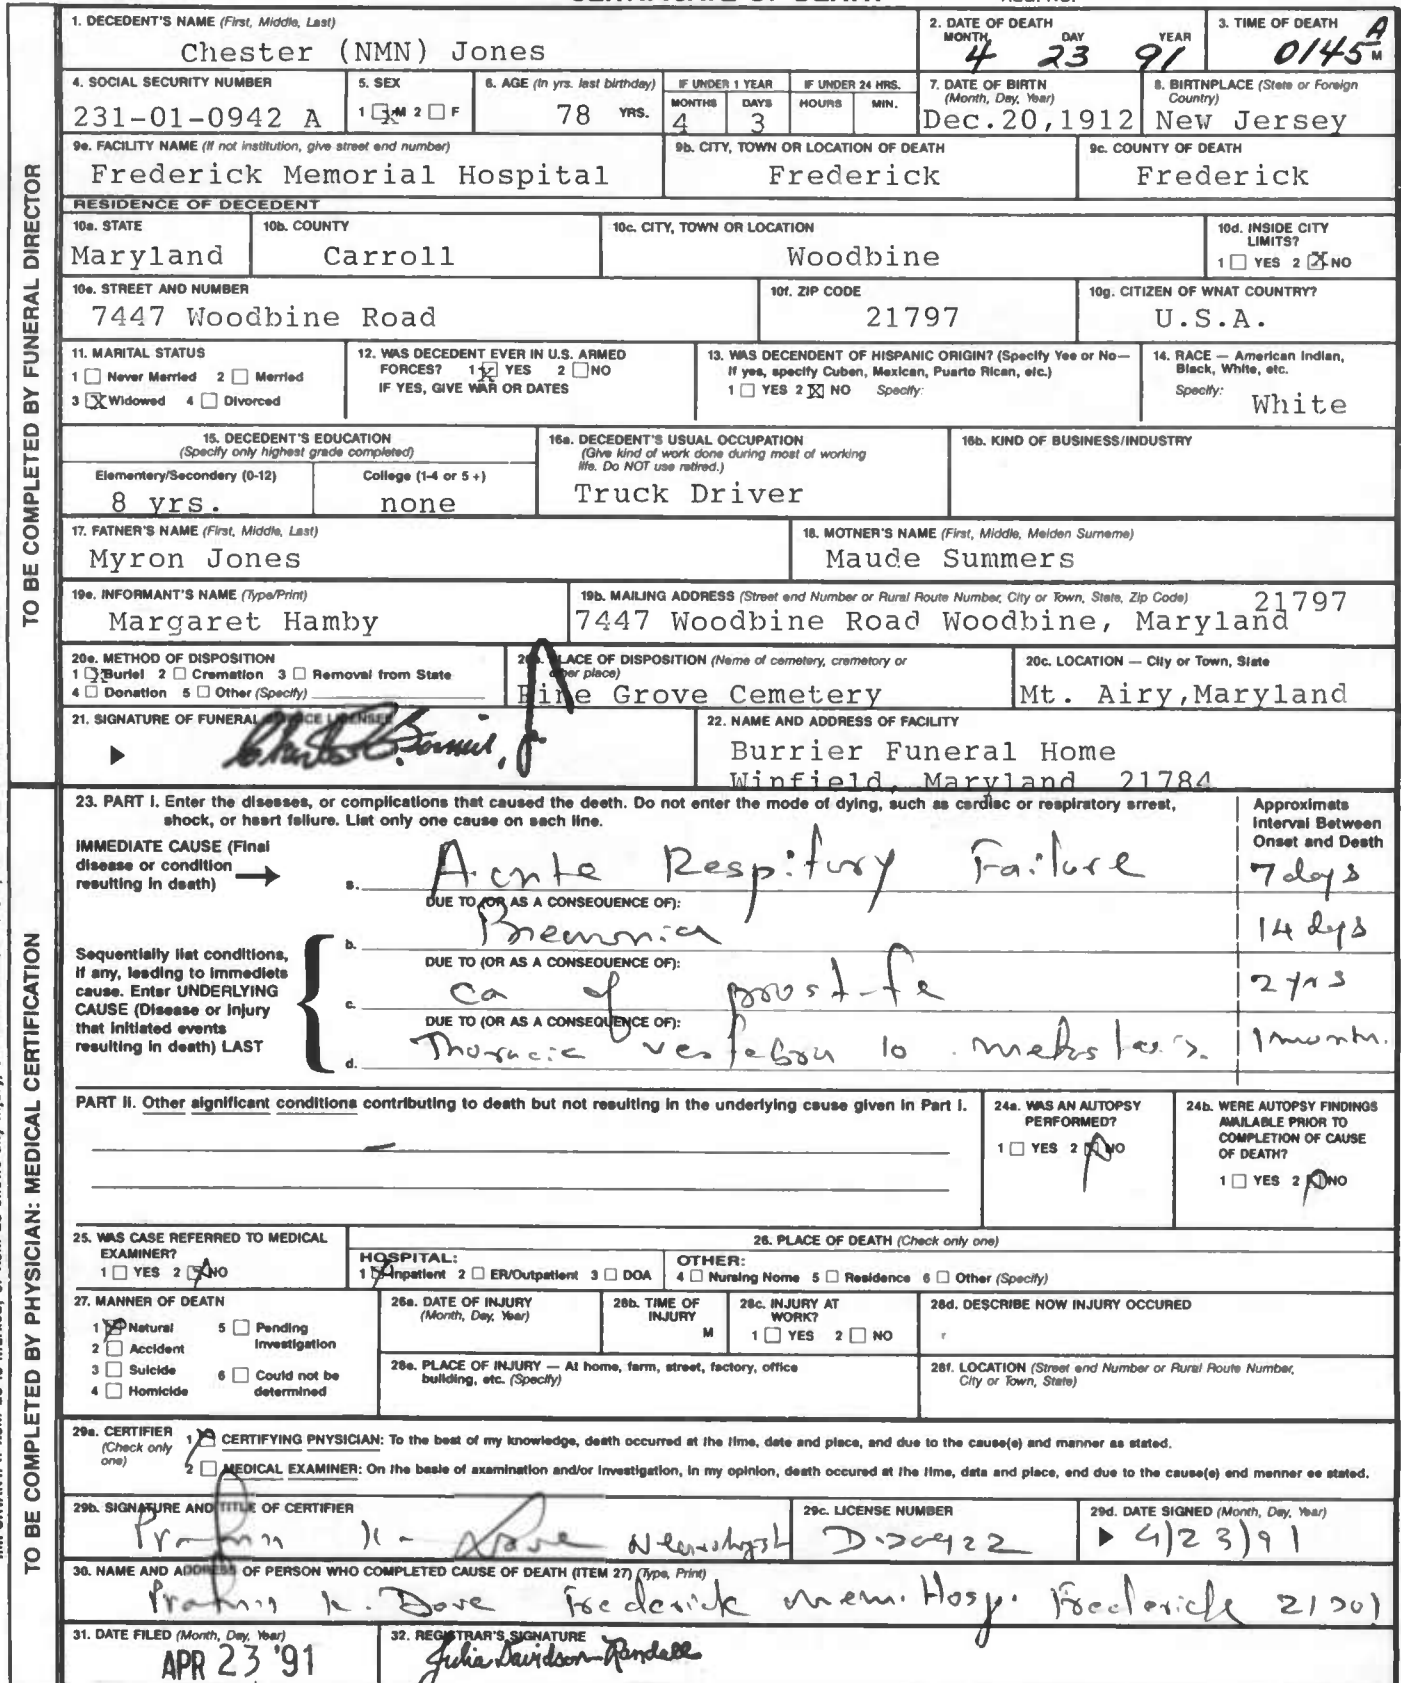 1. DECEDENT'S NAME (First, Middle, Last)
Chester (NMN) Jones
2. DATE OF DEATH
MONTH DAY YEAR
4 23 91
3. TIME OF DEATH
0145 A M
4. SOCIAL SECURITY NUMBER
231-01-0942 A
5. SEX
1 M 2 F
6. AGE (In yrs. last birthday)
78 YRS.
IF UNDER 1 YEAR
MONTHS DAYS
4 3
IF UNDER 24 HRS.
HOURS MIN.
7. DATE OF BIRTH
(Month, Day, Year)
Dec.20,1912
8. BIRTNPLACE (State or Foreign
Country)
New Jersey
9e. FACILITY NAME (If not institution, give street end number)
Frederick Memorial Hospital
9b. CITY, TOWN OR LOCATION OF DEATH
Frederick
9c. COUNTY OF DEATH
Frederick
RESIDENCE OF DECEDENT
10a. STATE
Maryland
10b. COUNTY
Carroll
10c. CITY, TOWN OR LOCATION
Woodbine
10d. INSIDE CITY
LIMITS?
1 YES 2 X NO
10e. STREET AND NUMBER
7447 Woodbine Road
10f. ZIP CODE
21797
10g. CITIZEN OF WNAT COUNTRY?
U.S.A.
11. MARITAL STATUS
1 Never Merried 2 Merried
3 X Widowed 4 Divorced
12. WAS DECEDENT EVER IN U.S. ARMED
FORCES? 1 X YES 2 NO
IF YES, GIVE WAR OR DATES
13. WAS DECENDENT OF HISPANIC ORIGIN? (Specify Yee or No—
If yes, specify Cuben, Mexican, Puarto Rican, etc.)
1 YES 2 X NO Specify:
14. RACE — American Indian,
Black, White, etc.
Specify:
White
15. DECEDENT'S EDUCATION
(Specify only highest grade completed)
Elementery/Secondery (0-12)
8 yrs.
College (1-4 or 5 +)
none
16a. DECEDENT'S USUAL OCCUPATION
(Give kind of work done during most of working
life. Do NOT use retired.)
Truck Driver
16b. KIND OF BUSINESS/INDUSTRY
17. FATNER'S NAME (First, Middle, Last)
Myron Jones
18. MOTNER'S NAME (First, Middle, Meiden Surneme)
Maude Summers
19e. INFORMANT'S NAME (Type/Print)
Margaret Hamby
19b. MAILING ADDRESS (Street end Number or Rural Route Number, City or Town, State, Zip Code)
21797
7447 Woodbine Road Woodbine, Maryland
20e. METHOD OF DISPOSITION
1 X Buriel 2 Cremation 3 Removal from State
4 Donation 5 Other (Specify)
PLACE OF DISPOSITION (Neme of cemetery, cremetory or
other place)
Pine Grove Cemetery
20c. LOCATION — City or Town, State
Mt. Airy,Maryland
21. SIGNATURE OF FUNERAL SERVICE LICENSEE
22. NAME AND ADDRESS OF FACILITY
Burrier Funeral Home
Winfield, Maryland 21784
TO BE COMPLETED BY FUNERAL DIRECTOR
23. PART I. Enter the diseases, or complications that caused the deeth. Do not enter the mode of dying, such as cardiac or respiratory arrest,
shock, or heart failure. List only one cause on each line.
Approximats
Interval Between
Onset and Death
IMMEDIATE CAUSE (Final
disease or condition
resulting in death)
a. Acute Respitory Failure 7 days
DUE TO (OR AS A CONSEQUENCE OF):
b. Pneumonia 14 days
DUE TO (OR AS A CONSEQUENCE OF):
c. Ca of prostate 2 yrs
DUE TO (OR AS A CONSEQUENCE OF):
d. Thoracic vertebra 10 metastasis. 1 month.
Sequentially list conditions,
if any, leading to immediete
cause. Enter UNDERLYING
CAUSE (Disease or injury
that initiated events
resulting in death) LAST
PART II. Other significant conditions contributing to death but not resulting in the underlying cause given in Part I.
24a. WAS AN AUTOPSY
PERFORMED?
1 YES 2 NO
24b. WERE AUTOPSY FINDINGS
AVAILABLE PRIOR TO
COMPLETION OF CAUSE
OF DEATH?
1 YES 2 NO
25. WAS CASE REFERRED TO MEDICAL
EXAMINER?
1 YES 2 NO
26. PLACE OF DEATH (Check only one)
HOSPITAL:
1 Inpatient 2 ER/Outpatient 3 DOA
OTHER:
4 Nursing Nome 5 Residence 6 Other (Specify)
27. MANNER OF DEATN
1 Natural 5 Pending
Investigation
2 Accident
3 Suicide 6 Could not be
4 Homicide determined
28a. DATE OF INJURY
(Month, Day, Year)
28b. TIME OF
INJURY
M
28c. INJURY AT
WORK?
1 YES 2 NO
28d. DESCRIBE NOW INJURY OCCURED
28e. PLACE OF INJURY — At home, ferm, street, factory, office
building, etc. (Specify)
28f. LOCATION (Street end Number or Rural Route Number,
City or Town, State)
29a. CERTIFIER
(Check only
one)
1 CERTIFYING PNYSICIAN: To the best of my knowledge, death occurred at the time, date and place, and due to the cause(e) and manner as stated.
2 MEDICAL EXAMINER: On the basie of examination and/or investigation, in my opinion, death occured at the time, data and place, end due to the cause(e) end menner ee stated.
29b. SIGNATURE AND TITLE OF CERTIFIER
29c. LICENSE NUMBER
D-20922
29d. DATE SIGNED (Month, Day, Year)
4/23/91
30. NAME AND ADDRESS OF PERSON WHO COMPLETED CAUSE OF DEATH (ITEM 27) (Type, Print)
K. Dave Frederick Mem. Hosp. Frederick 21701
31. DATE FILED (Month, Day, Year)
APR 23 '91
32. REGISTRAR'S SIGNATURE
Julia Davidson-Randall
TO BE COMPLETED BY PHYSICIAN: MEDICAL CERTIFICATION